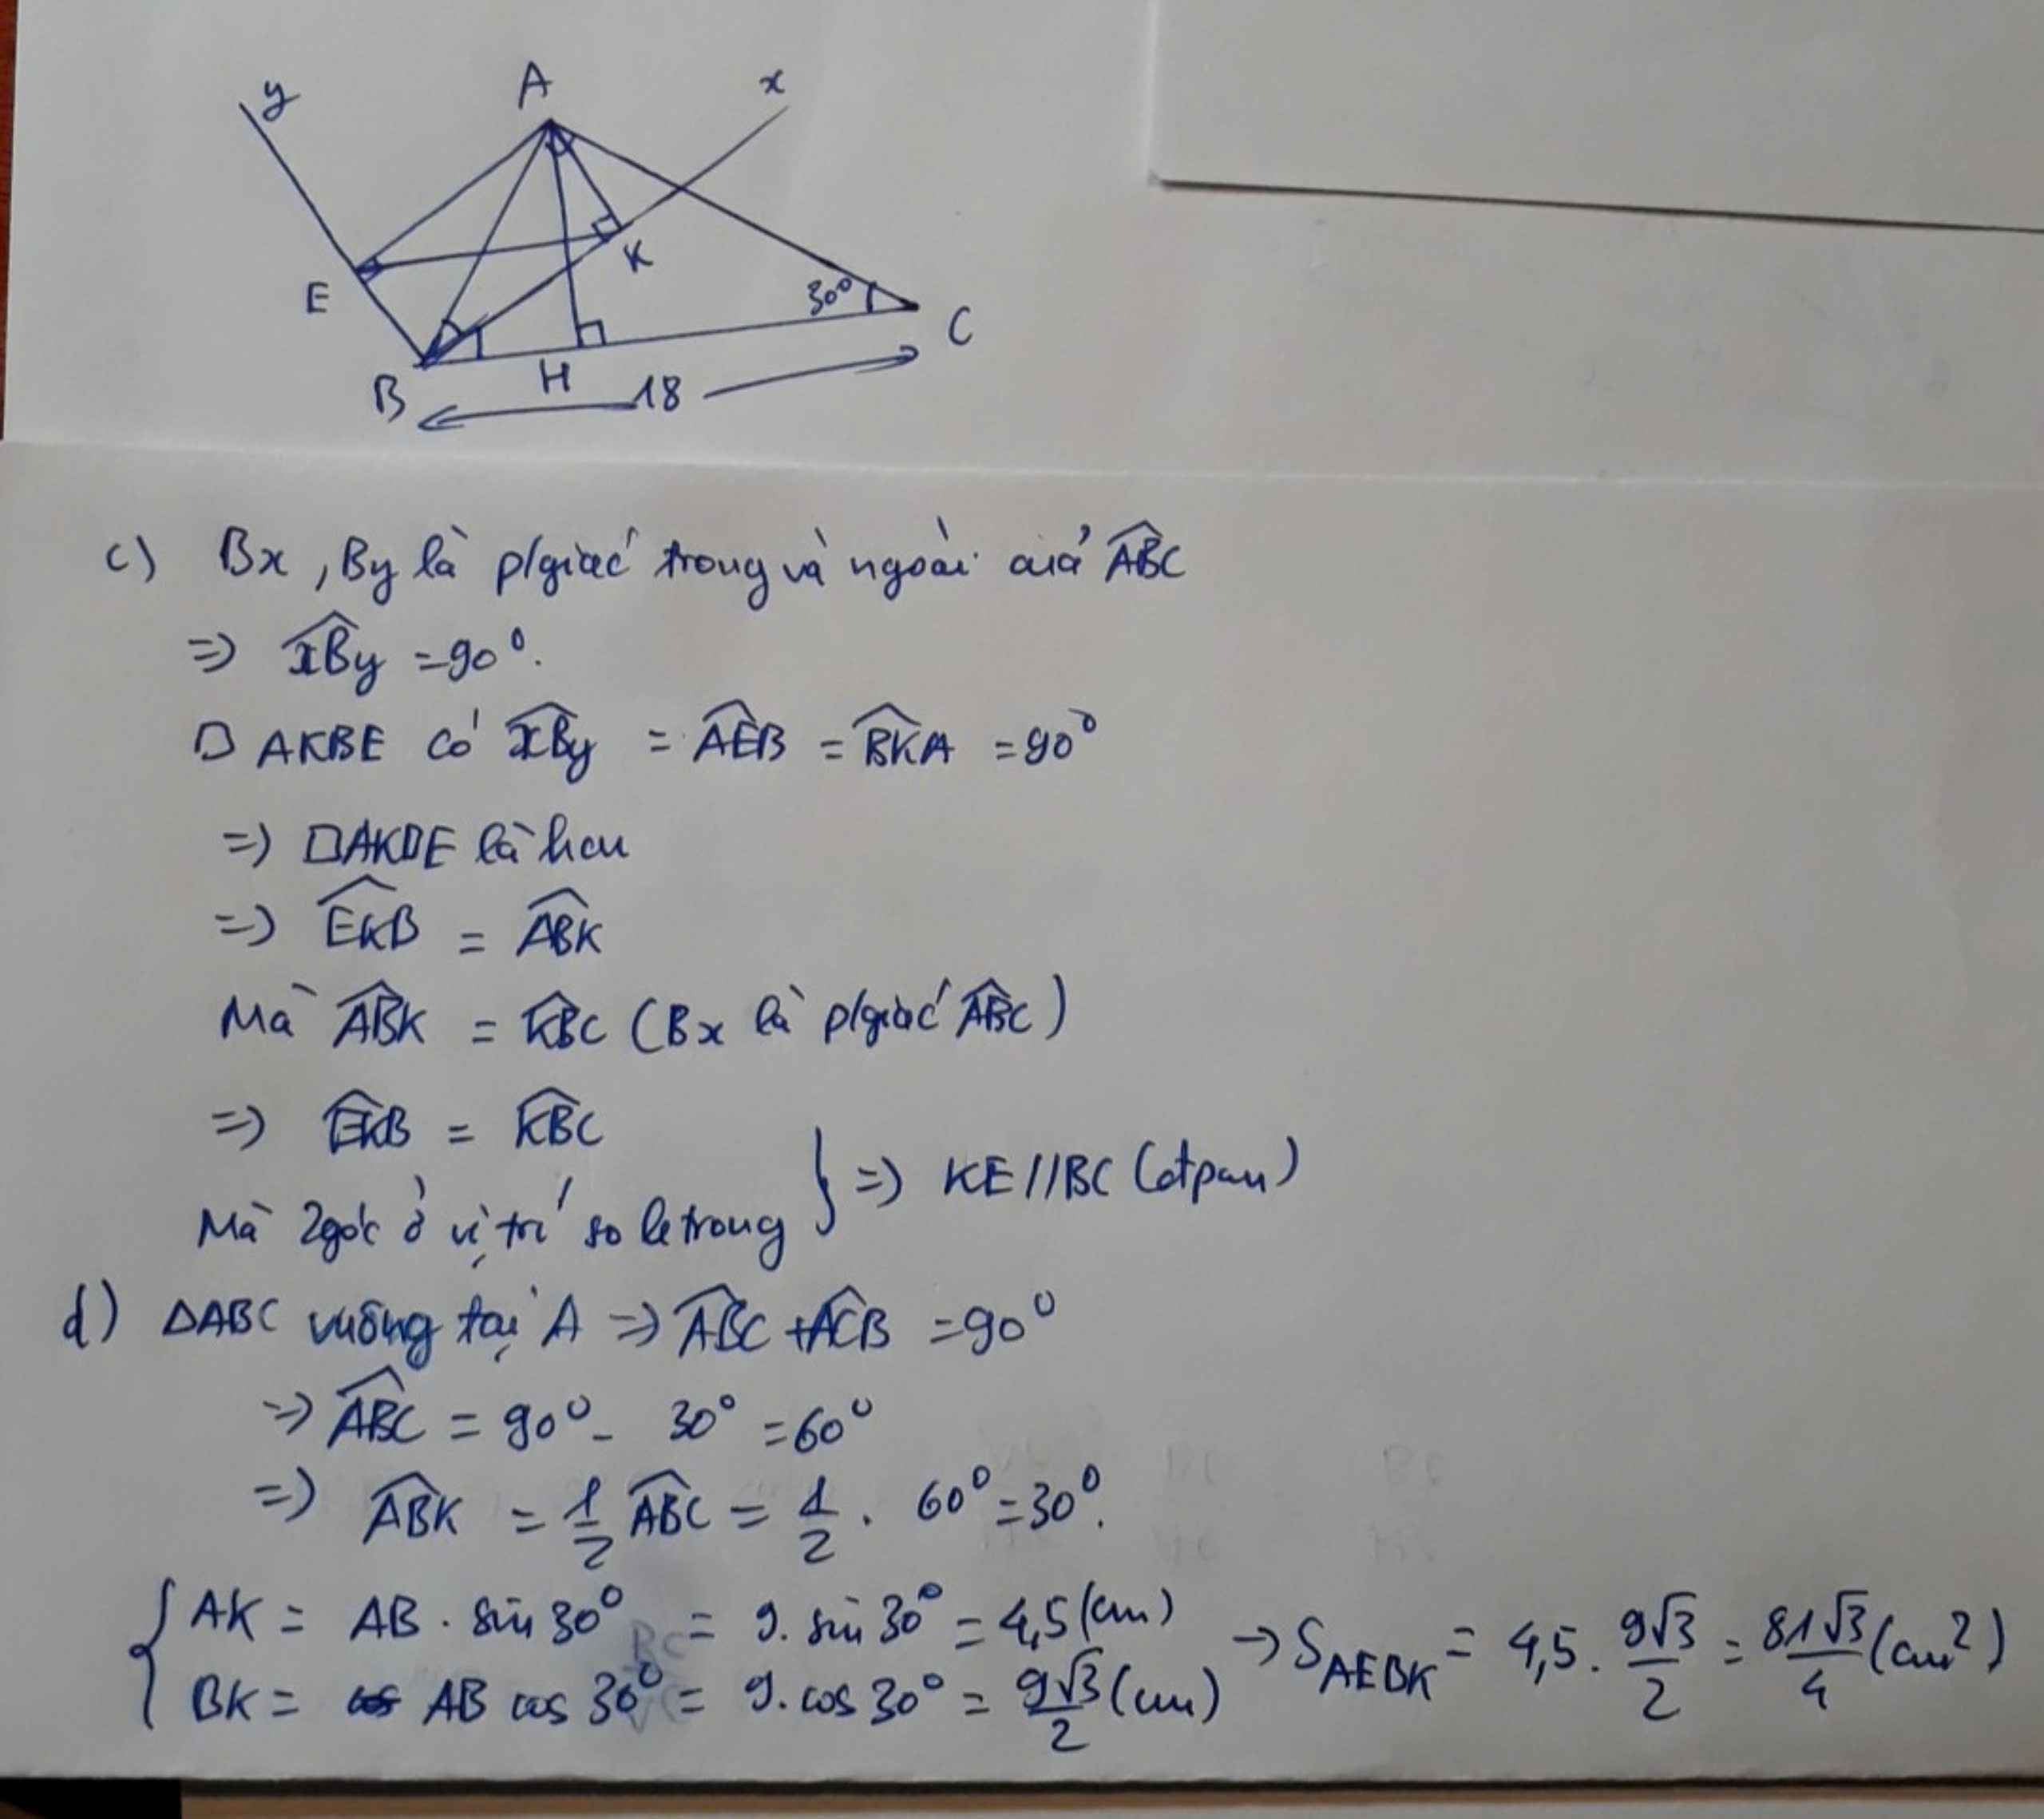 y
A
x
E
K
30°
C
B
H
18
c) Bx, By là p/giác trong và ngoài của \widehat{ABC}
=> \widehat{xBy} = 90°.
□ AKBE có \widehat{xBy} = \widehat{AEB} = \widehat{BKA} = 90°
=> □AKBE là hcn
=> \widehat{EKB} = \widehat{ABK}
Mà \widehat{ABK} = \widehat{KBC} (Bx là p/giác \widehat{ABC})
=> \widehat{EKB} = \widehat{KBC}
Mà 2 góc ở vị trí so le trong } => KE // BC (đtpcm)
d) ΔABC vuông tại A => \widehat{ABC} + \widehat{ACB} = 90°
=> \widehat{ABC} = 90° - 30° = 60°
=> \widehat{ABK} = \frac{1}{2} \widehat{ABC} = \frac{1}{2} . 60° = 30°.
{ AK = AB . sin 30° = 9. sin 30° = 4,5 (cm)
BK = AB cos 30° = 9. cos 30° = \frac{9√3}{2} (cm)
→ S_{AEBK} = 4,5. \frac{9√3}{2} = \frac{81√3}{4} (cm²)